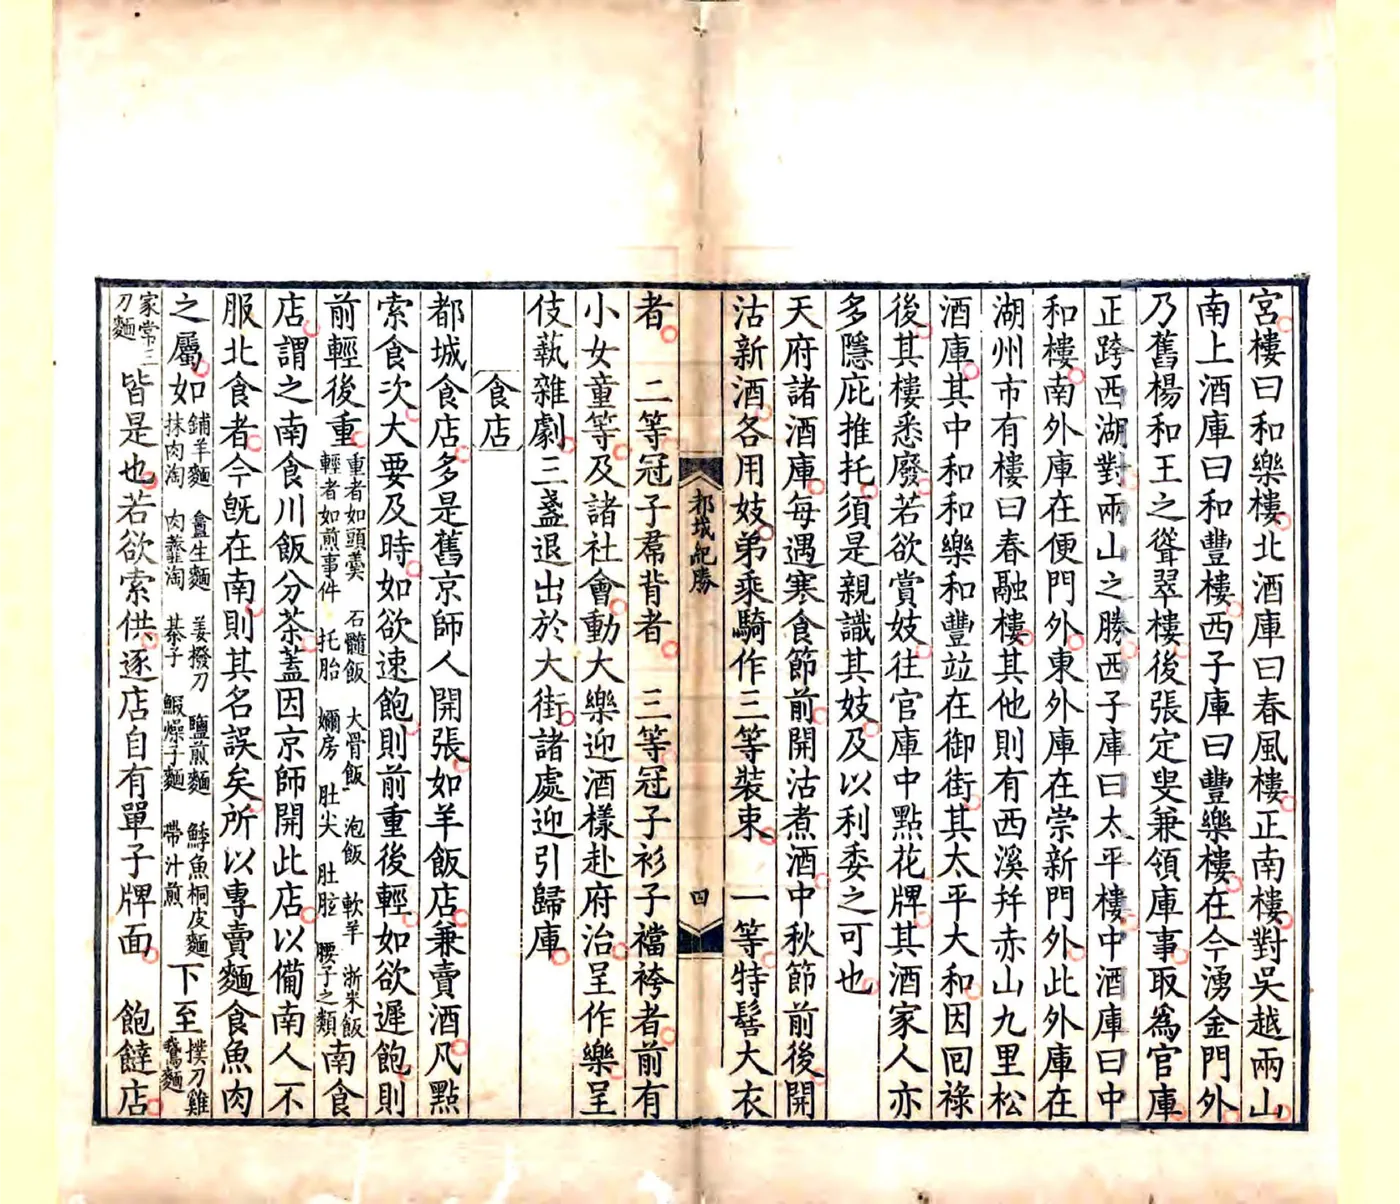 宮樓曰和樂樓北酒庫曰春風樓正南樓對吳越兩山
南上酒庫曰和豐樓西子庫曰豐樂樓在今湧金門外
乃舊楊和王之聳翠樓後張定叟兼領庫事取爲官庫
正跨西湖對兩山之勝西子庫曰太平樓中酒庫曰中
和樓南外庫在便門外東外庫在崇新門外北外庫在
湖州市有樓曰春融樓其他則有西溪幷赤山九里松
酒庫其中和和樂和豐竝在御街其太平大和因回祿
後其樓悉廢若欲賞妓往官庫中點花牌其酒家人亦
多隱庇推托須是親識其妓及以利委之可也
天府諸酒庫每遇寒食節前開沽煮酒中秋節前後開
沽新酒各用妓弟乘騎作三等裝束　一等特髻大衣
都城紀勝　四
者　二等冠子帬背者　三等冠子衫子襠袴者前有
小女童等及諸社會動大樂迎酒樣赴府治呈作樂呈
伎蓺雜劇三盞退出於大街諸處迎引歸庫
食店
都城食店多是舊京師人開張如羊飯店兼賣酒凡點
索食次大要及時如欲速飽則前重後輕如欲遲飽則
前輕後重重者如頭羹　石髓飯　大骨飯　泡飯　軟羊　浙米飯輕者如煎事件　托胎　嬭房　肚尖　肚胘　腰子之類南食
店謂之南食川飯分茶蓋因京師開此店以備南人不
服北食者今旣在南則其名誤矣所以專賣麵食魚肉
之屬如鋪羊麵　盦生麵　姜撥刀　鹽煎麵　鯚魚桐皮麵抹肉淘　肉虀淘　棊子　鰕燥子麵　帶汁煎下至撲刀雞鵞麵
家常三刀麵皆是也若欲索供逐店自有單子牌面　飽饐店